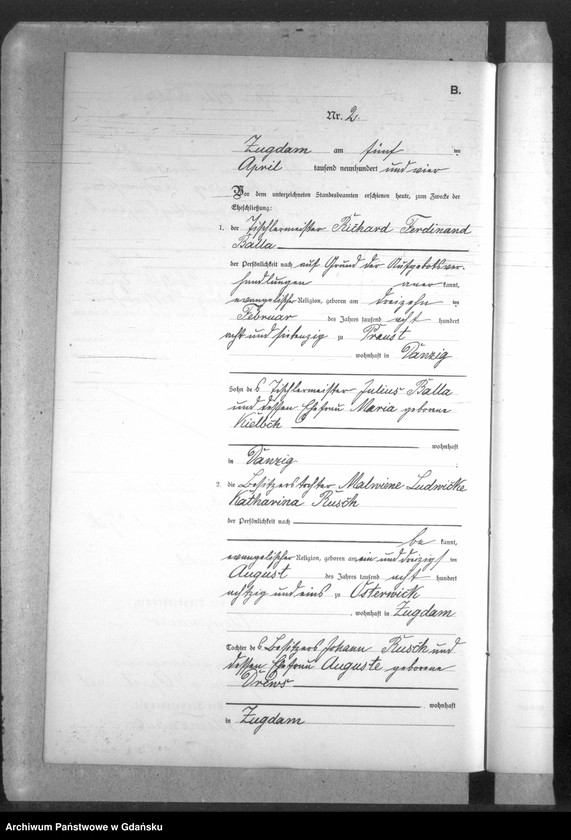 B.
Nr. 2.
Zugdam am fünf ten
April tausend neunhundert und vier
Vor dem unterzeichneten Standesbeamten erschienen heute, zum Zwecke der
Eheschließung:
1. der Tischlermeister Richard Ferdinand
Balla
der Persönlichkeit nach auf Grund der Aufgebotsver-
handlungen aner kannt,
evangelischer Religion, geboren am dreizehn ten
Februar des Jahres tausend acht hundert
acht und siebenzig zu Praust
wohnhaft in Danzig
Sohn des Tischlermeister Julius Balla
und dessen Ehefrau Maria geborene
Kielbch
wohnhaft
in Danzig
2. die Besitzerstochter Malwiene Ludwicke
Katharina Rusch
der Persönlichkeit nach
be kannt,
evangelischer Religion, geboren am ein und dreizigs ten
August des Jahres tausend acht hundert
achtzig und eins zu Osterwick
, wohnhaft in Zugdam
Tochter des Besitzers Johann Rusch und
dessen Ehefrau Auguste geborene
Drews
wohnhaft
in Zugdam
Archiwum Państwowe w Gdańsku